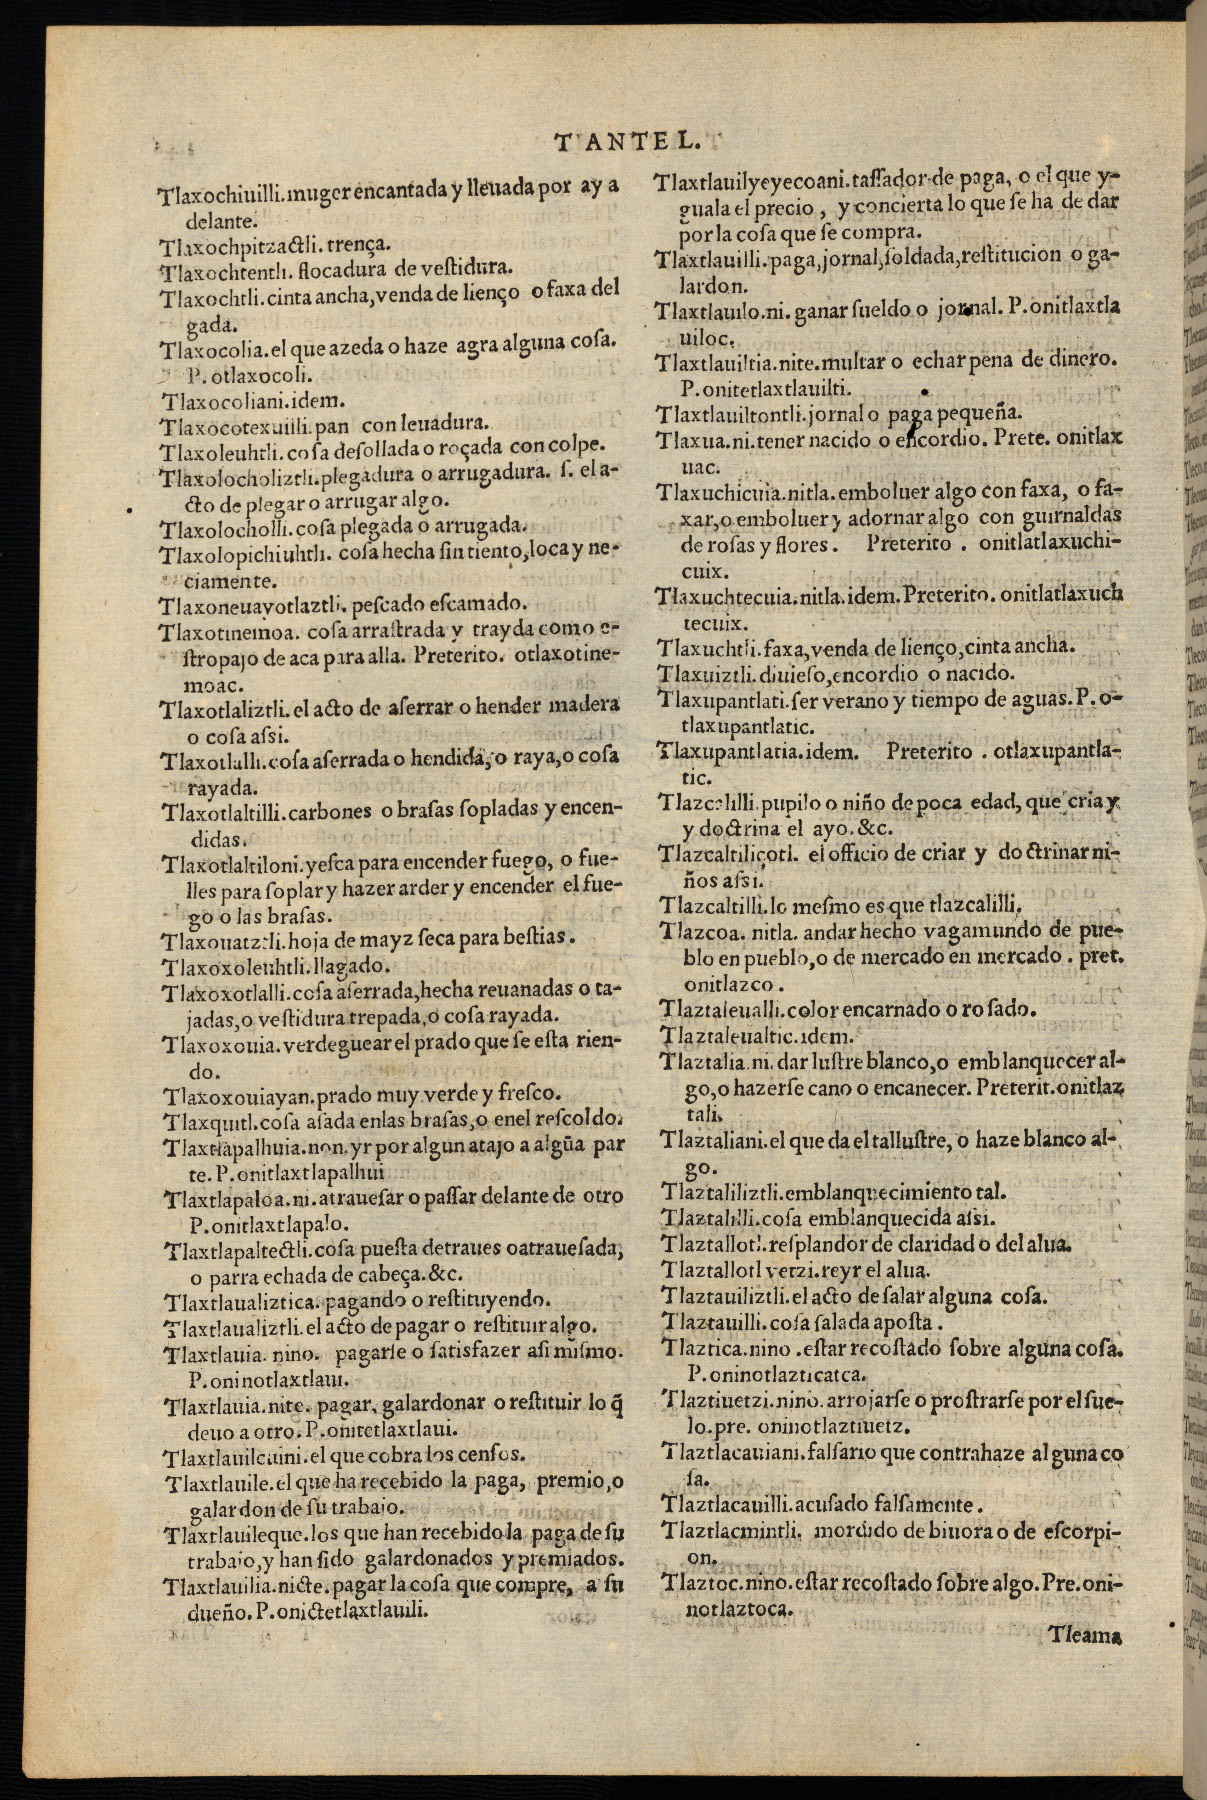 T ANTE L.
Tlaxochiuilli.muger encantada y lleuada por ay a
delante.
Tlaxochpitzactli. trença.
Tlaxochtentli. flocadura de veſtidura.
Tlaxochtli.cinta ancha,venda de lienço o faxa del
gada.
Tlaxocolia.el que azeda o haze agra alguna coſa.
P. otlaxocoli.
Tlaxocoliani.idem.
Tlaxocotexuilli.pan con leuadura.
Tlaxoleuhtli.coſa deſollada o roçada con colpe.
Tlaxolocholiztli.plegadura o arrugadura. ſ. el a-
cto de plegar o arrugar algo.
Tlaxolocholli.coſa plegada o arrugada.
Tlaxolopichiuhtli. coſa hecha ſin tiento,loca y ne-
ciamente.
Tlaxoneuayotlaztli. peſcado eſcamado.
Tlaxotinemoa. coſa arraſtrada y trayda como e-
ſtropajo de aca para alla. Preterito. otlaxotine-
moac.
Tlaxotlaliztli.el acto de aſerrar o hender madera
o coſa aſsi.
Tlaxotlalli.coſa aſerrada o hendida,o raya,o coſa
rayada.
Tlaxotlaltilli.carbones o braſas ſopladas y encen-
didas.
Tlaxotlaltiloni.yeſca para encender fuego, o fue-
lles para ſoplar y hazer arder y encender el fue-
go o las braſas.
Tlaxouatztli.hoja de mayz ſeca para beſtias.
Tlaxoxoleuhtli.llagado.
Tlaxoxotlalli.coſa aſerrada,hecha reuanadas o ta-
jadas,o veſtidura trepada,o coſa rayada.
Tlaxoxouia.verdeguear el prado que ſe eſta rien-
do.
Tlaxoxouiayan.prado muy verde y freſco.
Tlaxquitl.coſa aſada enlas braſas,o enel reſcoldo.
Tlaxtlapalhuia.non.yr por algun atajo a algũa par
te. P.onitlaxtlapalhui
Tlaxtlapaloa.ni.atraueſar o paſſar delante de otro
P.onitlaxtlapalo.
Tlaxtlapaltectli.coſa pueſta detraues oatraueſada,
o parra echada de cabeça.&c.
Tlaxtlaualiztica.pagando o reſtituyendo.
Tlaxtlaualiztli.el acto de pagar o reſtituir algo.
Tlaxtlauia. nino. pagarſe o ſatisfazer aſi miſmo.
P.oninotlaxtlaui.
Tlaxtlauia.nite. pagar, galardonar o reſtituir lo q̃
deuo a otro.P.onitetlaxtlaui.
Tlaxtlauilcuini.el que cobra los cenſos.
Tlaxtlauile.el que ha recebido la paga, premio,o
galardon de ſu trabaio.
Tlaxtlauileque.los que han recebido la paga de ſu
trabaio,y han ſido galardonados y premiados.
Tlaxtlauilia.nicte.pagar la coſa que compre, a ſu
dueño.P.onictetlaxtlauili.
Tlaxtlauilyeyecoani.taſſador de paga, o el que y-
guala el precio , y concierta lo que ſe ha de dar
por la coſa que ſe compra.
Tlaxtlauilli.paga,jornal,ſoldada,reſtitucion o ga-
lardon.
Tlaxtlauilo.ni.ganar ſueldo o jornal. P.onitlaxtla
uiloc.
Tlaxtlauiltia.nite.multar o echar pena de dinero.
P.onitetlaxtlauilti.
Tlaxtlauiltontli.jornal o paga pequeña.
Tlaxua.ni.tener nacido o encordio. Prete. onitlax
uac.
Tlaxuchicuia.nitla.emboluer algo con faxa, o fa-
xar,o emboluer y adornar algo con guirnaldas
de roſas y flores. Preterito . onitlatlaxuchi-
cuix.
Tlaxuchtecuia.nitla.idem.Preterito.onitlatlaxuch
tecuix.
Tlaxuchtli.faxa,venda de lienço,cinta ancha.
Tlaxuiztli.diuieſo,encordio o nacido.
Tlaxupantlati.ſer verano y tiempo de aguas.P.o-
tlaxupantlatic.
Tlaxupantlatia.idem. Preterito . otlaxupantla-
tic.
Tlazcalilli.pupilo o niño de poca edad, que cria y
y doctrina el ayo.&c.
Tlazcaltiliçotl. el officio de criar y doctrinar ni-
ños aſsi.
Tlazcaltilli.lo meſmo es que tlazcalilli.
Tlazcoa. nitla. andar hecho vagamundo de pue-
blo en pueblo,o de mercado en mercado . pret.
onitlazco.
Tlaztaleualli.color encarnado o roſado.
Tlaztaleualtic.idem.
Tlaztalia.ni.dar luſtre blanco,o emblanquecer al-
go,o hazerſe cano o encanecer. Preterit.onitlaz
tali.
Tlaztaliani.el que da el talluſtre, o haze blanco al-
go.
Tlaztaliliztli.emblanquecimiento tal.
Tlaztalilli.coſa emblanquecida aſsi.
Tlaztallotl.reſplandor de claridad o del alua.
Tlaztallotl vetzi.reyr el alua.
Tlaztauiliztli.el acto de ſalar alguna coſa.
Tlaztauilli.coſa ſalada apoſta .
Tlaztica.nino .eſtar recoſtado ſobre alguna coſa.
P.oninotlazticatca.
Tlaztiuetzi.nino.arrojarſe o proſtrarſe por el ſue-
lo.pre. oninotlaztiuetz.
Tlaztlacauiani.falſario que contrahaze alguna co
ſa.
Tlaztlacauilli.acuſado falſamente.
Tlaztlacmintli. mordido de biuora o de eſcorpi-
on.
Tlaztoc.nino.eſtar recoſtado ſobre algo.Pre.oni-
notlaztoca.
Tleama